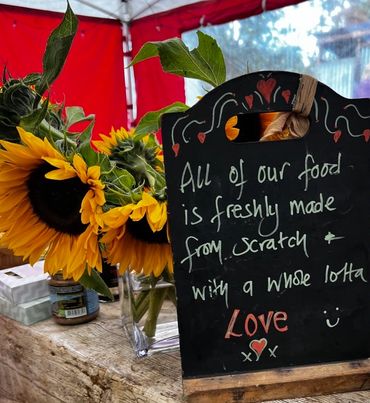 All of our food
is freshly made
from scratch +
with a whole lotta
LOVE :)
x x